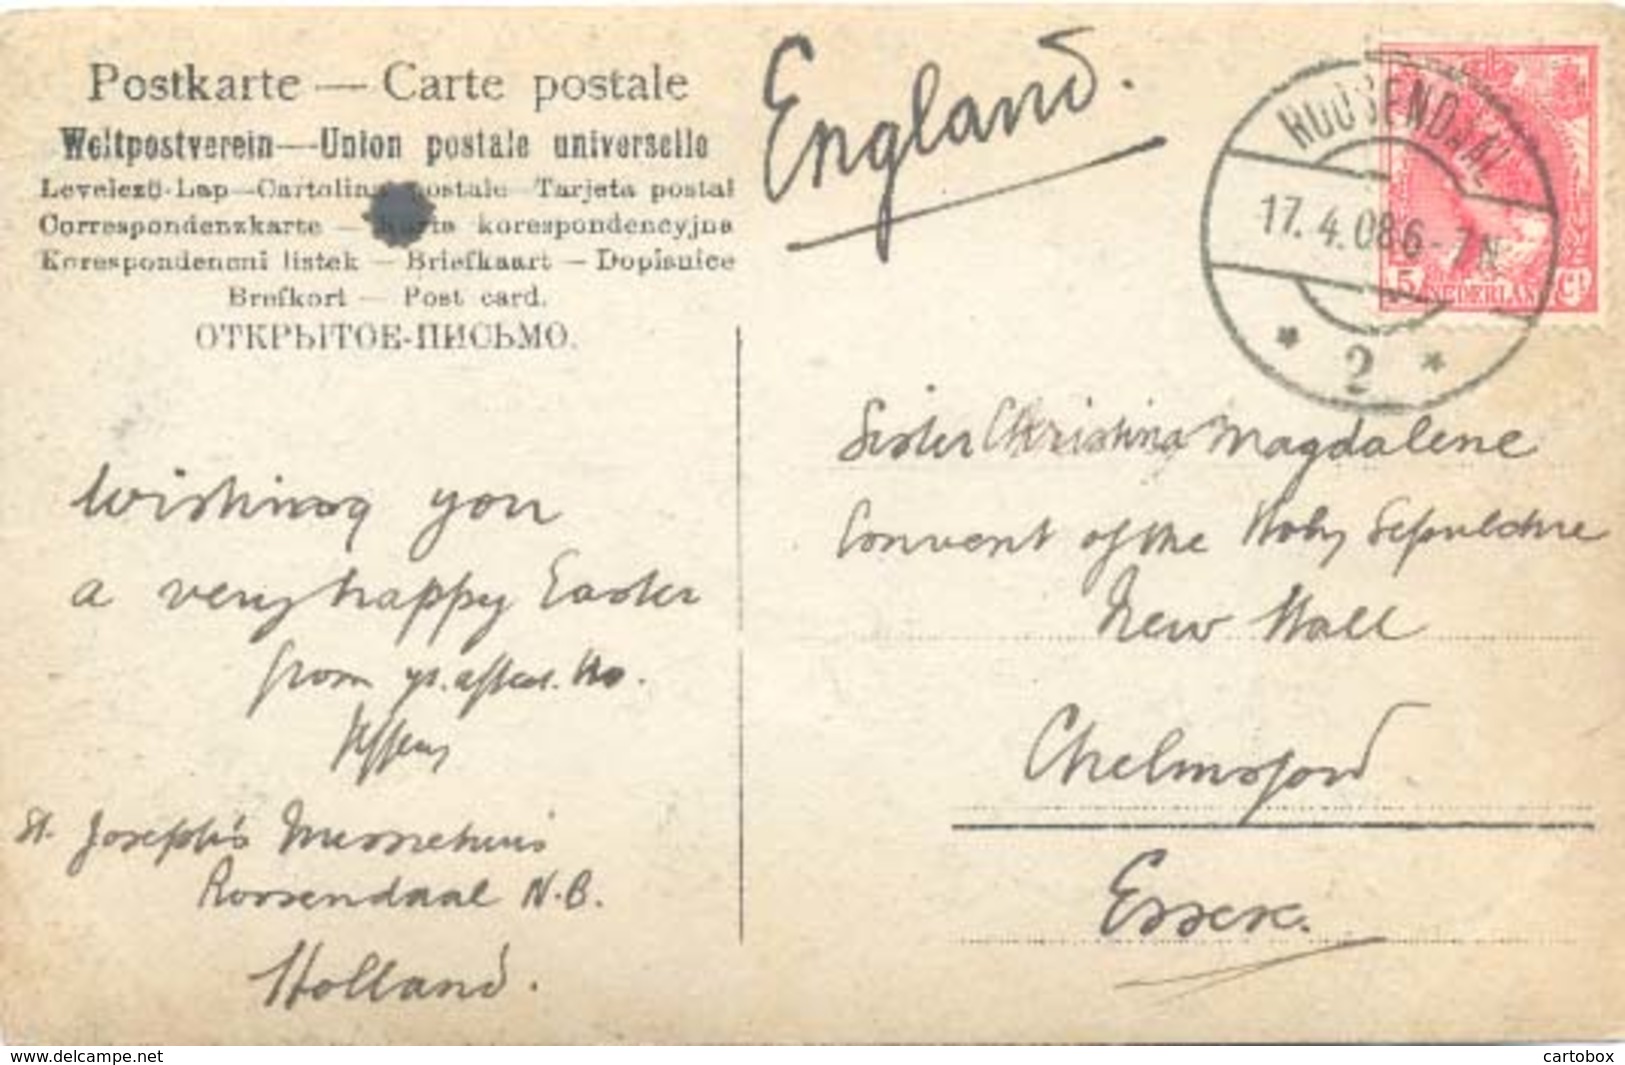 Postkarte — Carte postale
Weltpostverein—Union postale universelle
Levelező-Lap—Cartolina postale Tarjeta postal
Correspondenzkarte — Karta korespondencyjna
Korespondencni listek — Briefkaart — Dopisnice
Brefkort — Post card.
ОТКРЫТОЕ-ПИСЬМО.
England.
ROOSENDAAL
17.4.08 6-7N
* 2 *
5 NEDERLAND CT
Wishing you
a very happy Easter
from yr. affect.
St. Joseph's Missiehuis
Roosendaal N.B.
Holland.
Sister Christina Magdalene
Convent of the Holy Sepulchre
New Hall
Chelmsford
Essex.
www.delcampe.net
cartobox